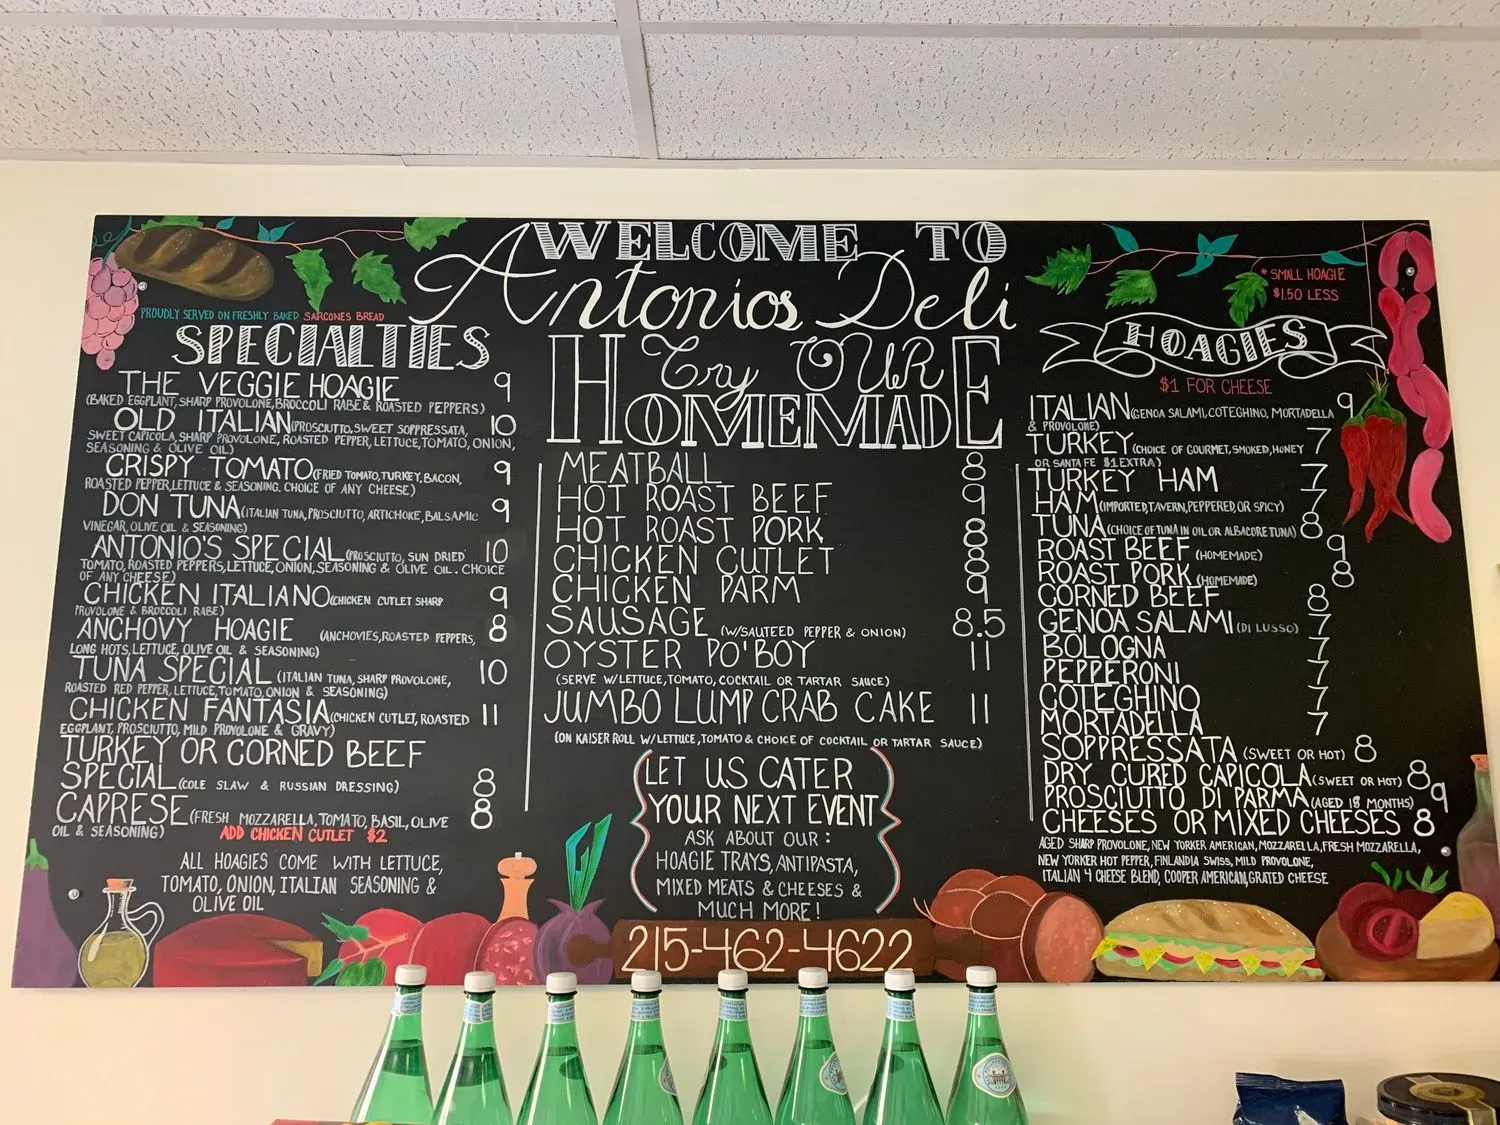 WELCOME TO
Antonios Deli
PROUDLY SERVED ON FRESHLY BAKED SARCONES BREAD
SPECIALTIES
THE VEGGIE HOAGIE 9
(BAKED EGGPLANT, SHARP PROVOLONE, BROCCOLI RABE & ROASTED PEPPERS)
OLD ITALIAN (PROSCIUTTO, SWEET SOPPRESSATA, 10
SWEET CAPICOLA, SHARP PROVOLONE, ROASTED PEPPER, LETTUCE, TOMATO, ONION,
SEASONING & OLIVE OIL)
CRISPY TOMATO (FRIED TOMATO, TURKEY, BACON, 9
ROASTED PEPPER, LETTUCE & SEASONING. CHOICE OF ANY CHEESE)
DON TUNA (ITALIAN TUNA, PROSCIUTTO, ARTICHOKE, BALSAMIC 9
VINEGAR, OLIVE OIL & SEASONING)
ANTONIO'S SPECIAL (PROSCIUTTO, SUN DRIED 10
TOMATO, ROASTED PEPPERS, LETTUCE, ONION, SEASONING & OLIVE OIL. CHOICE
OF ANY CHEESE)
CHICKEN ITALIANO (CHICKEN CUTLET SHARP 9
PROVOLONE & BROCCOLI RABE)
ANCHOVY HOAGIE (ANCHOVIES, ROASTED PEPPERS, 8
LONG HOTS, LETTUCE, OLIVE OIL & SEASONING)
TUNA SPECIAL (ITALIAN TUNA, SHARP PROVOLONE, 10
ROASTED RED PEPPER, LETTUCE, TOMATO, ONION & SEASONING)
CHICKEN FANTASIA (CHICKEN CUTLET, ROASTED 11
EGGPLANT, PROSCIUTTO, MILD PROVOLONE & GRAVY)
TURKEY OR CORNED BEEF
SPECIAL (COLE SLAW & RUSSIAN DRESSING) 8
CAPRESE (FRESH MOZZARELLA, TOMATO, BASIL, OLIVE 8
OIL & SEASONING)
ADD CHICKEN CUTLET $2
ALL HOAGIES COME WITH LETTUCE,
TOMATO, ONION, ITALIAN SEASONING &
OLIVE OIL
Try OUR
HOMEMADE
MEATBALL 8
HOT ROAST BEEF 9
HOT ROAST PORK 8
CHICKEN CUTLET 8
CHICKEN PARM 9
SAUSAGE (W/SAUTEED PEPPER & ONION) 8.5
OYSTER PO'BOY 11
(SERVE W/LETTUCE, TOMATO, COCKTAIL OR TARTAR SAUCE)
JUMBO LUMP CRAB CAKE 11
(ON KAISER ROLL W/LETTUCE, TOMATO & CHOICE OF COCKTAIL OR TARTAR SAUCE)
LET US CATER
YOUR NEXT EVENT
ASK ABOUT OUR:
HOAGIE TRAYS, ANTIPASTA,
MIXED MEATS & CHEESES &
MUCH MORE!
215-462-4622
* SMALL HOAGIE
$1.50 LESS
HOAGIES
$1 FOR CHEESE
ITALIAN (GENOA SALAMI, COTEGHINO, MORTADELLA 9
& PROVOLONE)
TURKEY (CHOICE OF GOURMET, SMOKED, HONEY 7
OR SANTA FE $1 EXTRA)
TURKEY HAM 7
HAM (IMPORTED, TAVERN, PEPPERED, OR SPICY) 7
TUNA (CHOICE OF TUNA IN OIL OR ALBACORE TUNA) 8
ROAST BEEF (HOMEMADE) 9
ROAST PORK (HOMEMADE) 8
CORNED BEEF 8
GENOA SALAMI (DI LUSSO) 7
BOLOGNA 7
PEPPERONI 7
COTEGHINO 7
MORTADELLA 7
SOPPRESSATA (SWEET OR HOT) 8
DRY CURED CAPICOLA (SWEET OR HOT) 8
PROSCIUTTO DI PARMA (AGED 18 MONTHS) 9
CHEESES OR MIXED CHEESES 8
AGED SHARP PROVOLONE, NEW YORKER AMERICAN, MOZZARELLA, FRESH MOZZARELLA,
NEW YORKER HOT PEPPER, FINLANDIA SWISS, MILD PROVOLONE,
ITALIAN 4 CHEESE BLEND, COOPER AMERICAN, GRATED CHEESE